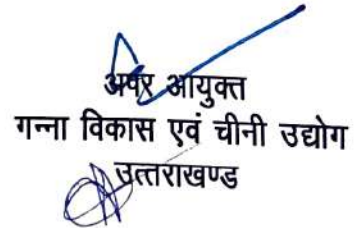 अपर आयुक्त
गन्ना विकास एवं चीनी उद्योग
उत्तराखण्ड